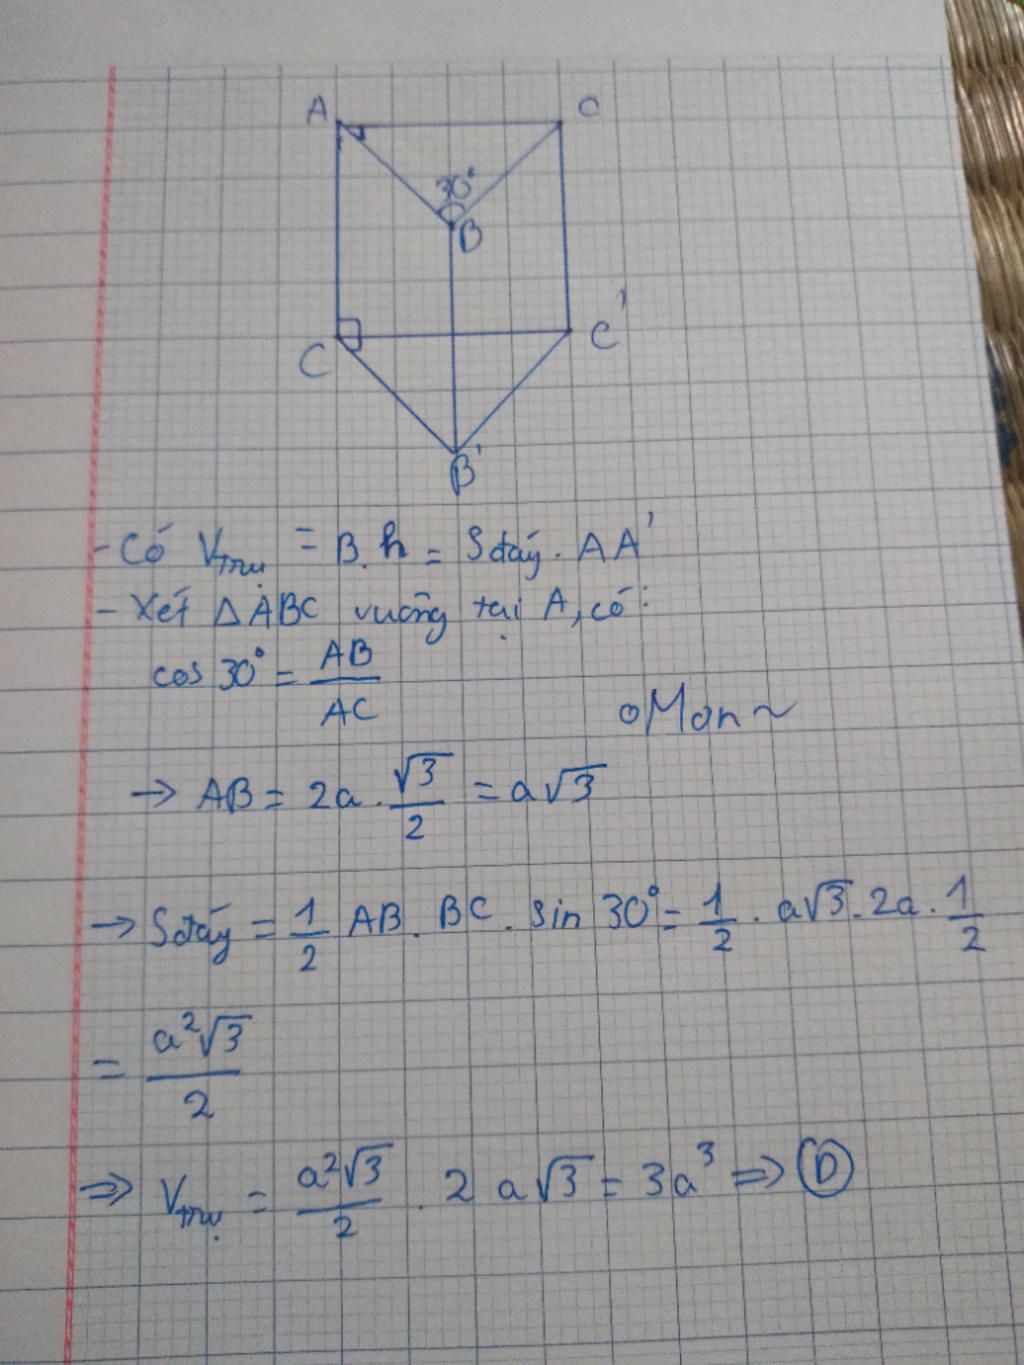 A C
30°
B
C C'
B'
- Có Vtrụ = B.h = Sđáy. AA'
- Xét ΔABC vuông tại A, có:
cos 30° = AB/AC
Mon~
→ AB = 2a . √3/2 = a√3
→ Sđáy = 1/2 AB. BC. sin 30° = 1/2 . a√3. 2a . 1/2
= a²√3/2
⇒ Vtrụ = a²√3/2 . 2 a√3 = 3a³ ⇒ D